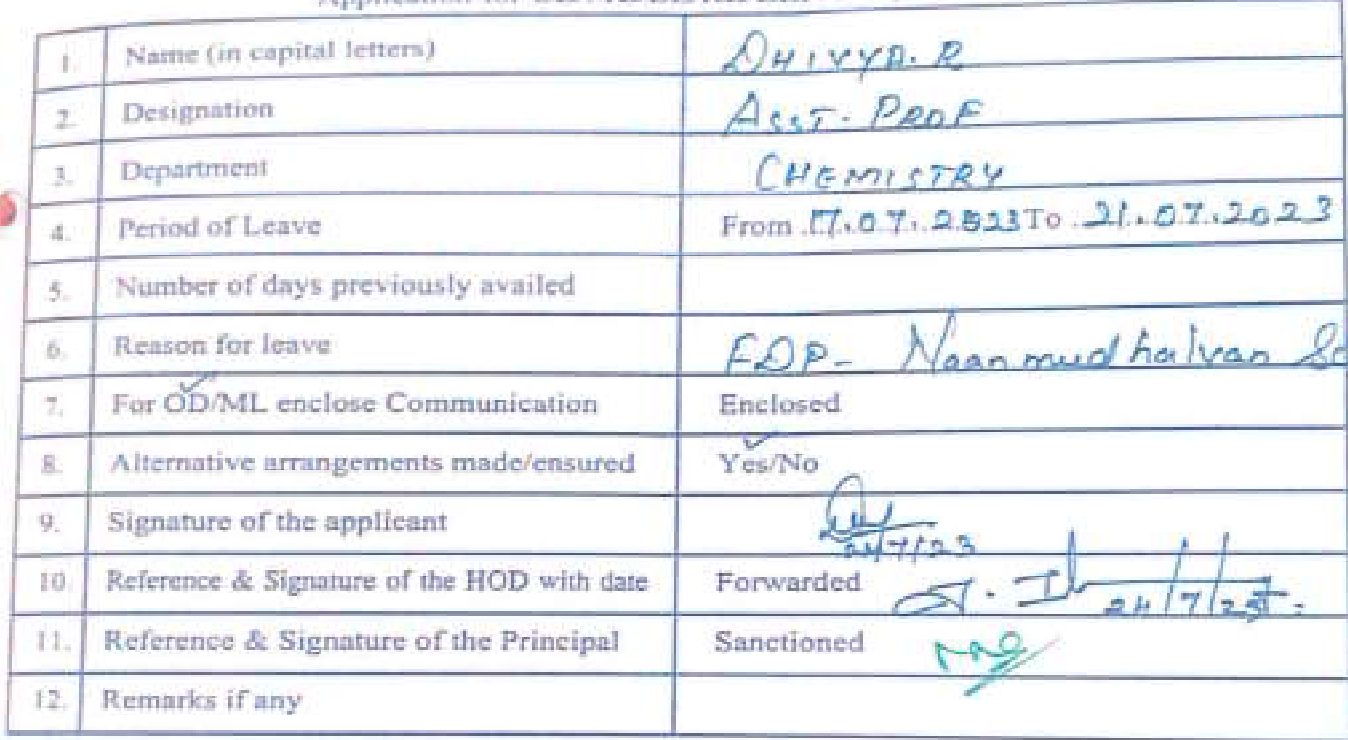 Application for
1. Name (in capital letters) DHIVYA. R
2. Designation ASST. PROF
3. Department CHEMISTRY
4. Period of Leave From 17.07.2023 To 21.07.2023
5. Number of days previously availed
6. Reason for leave FDP- Naanmudhalvan
7. For OD/ML enclose Communication Enclosed
8. Alternative arrangements made/ensured Yes/No
9. Signature of the applicant
24/7/23
10. Reference & Signature of the HOD with date Forwarded
24/7/23
11. Reference & Signature of the Principal Sanctioned
12. Remarks if any